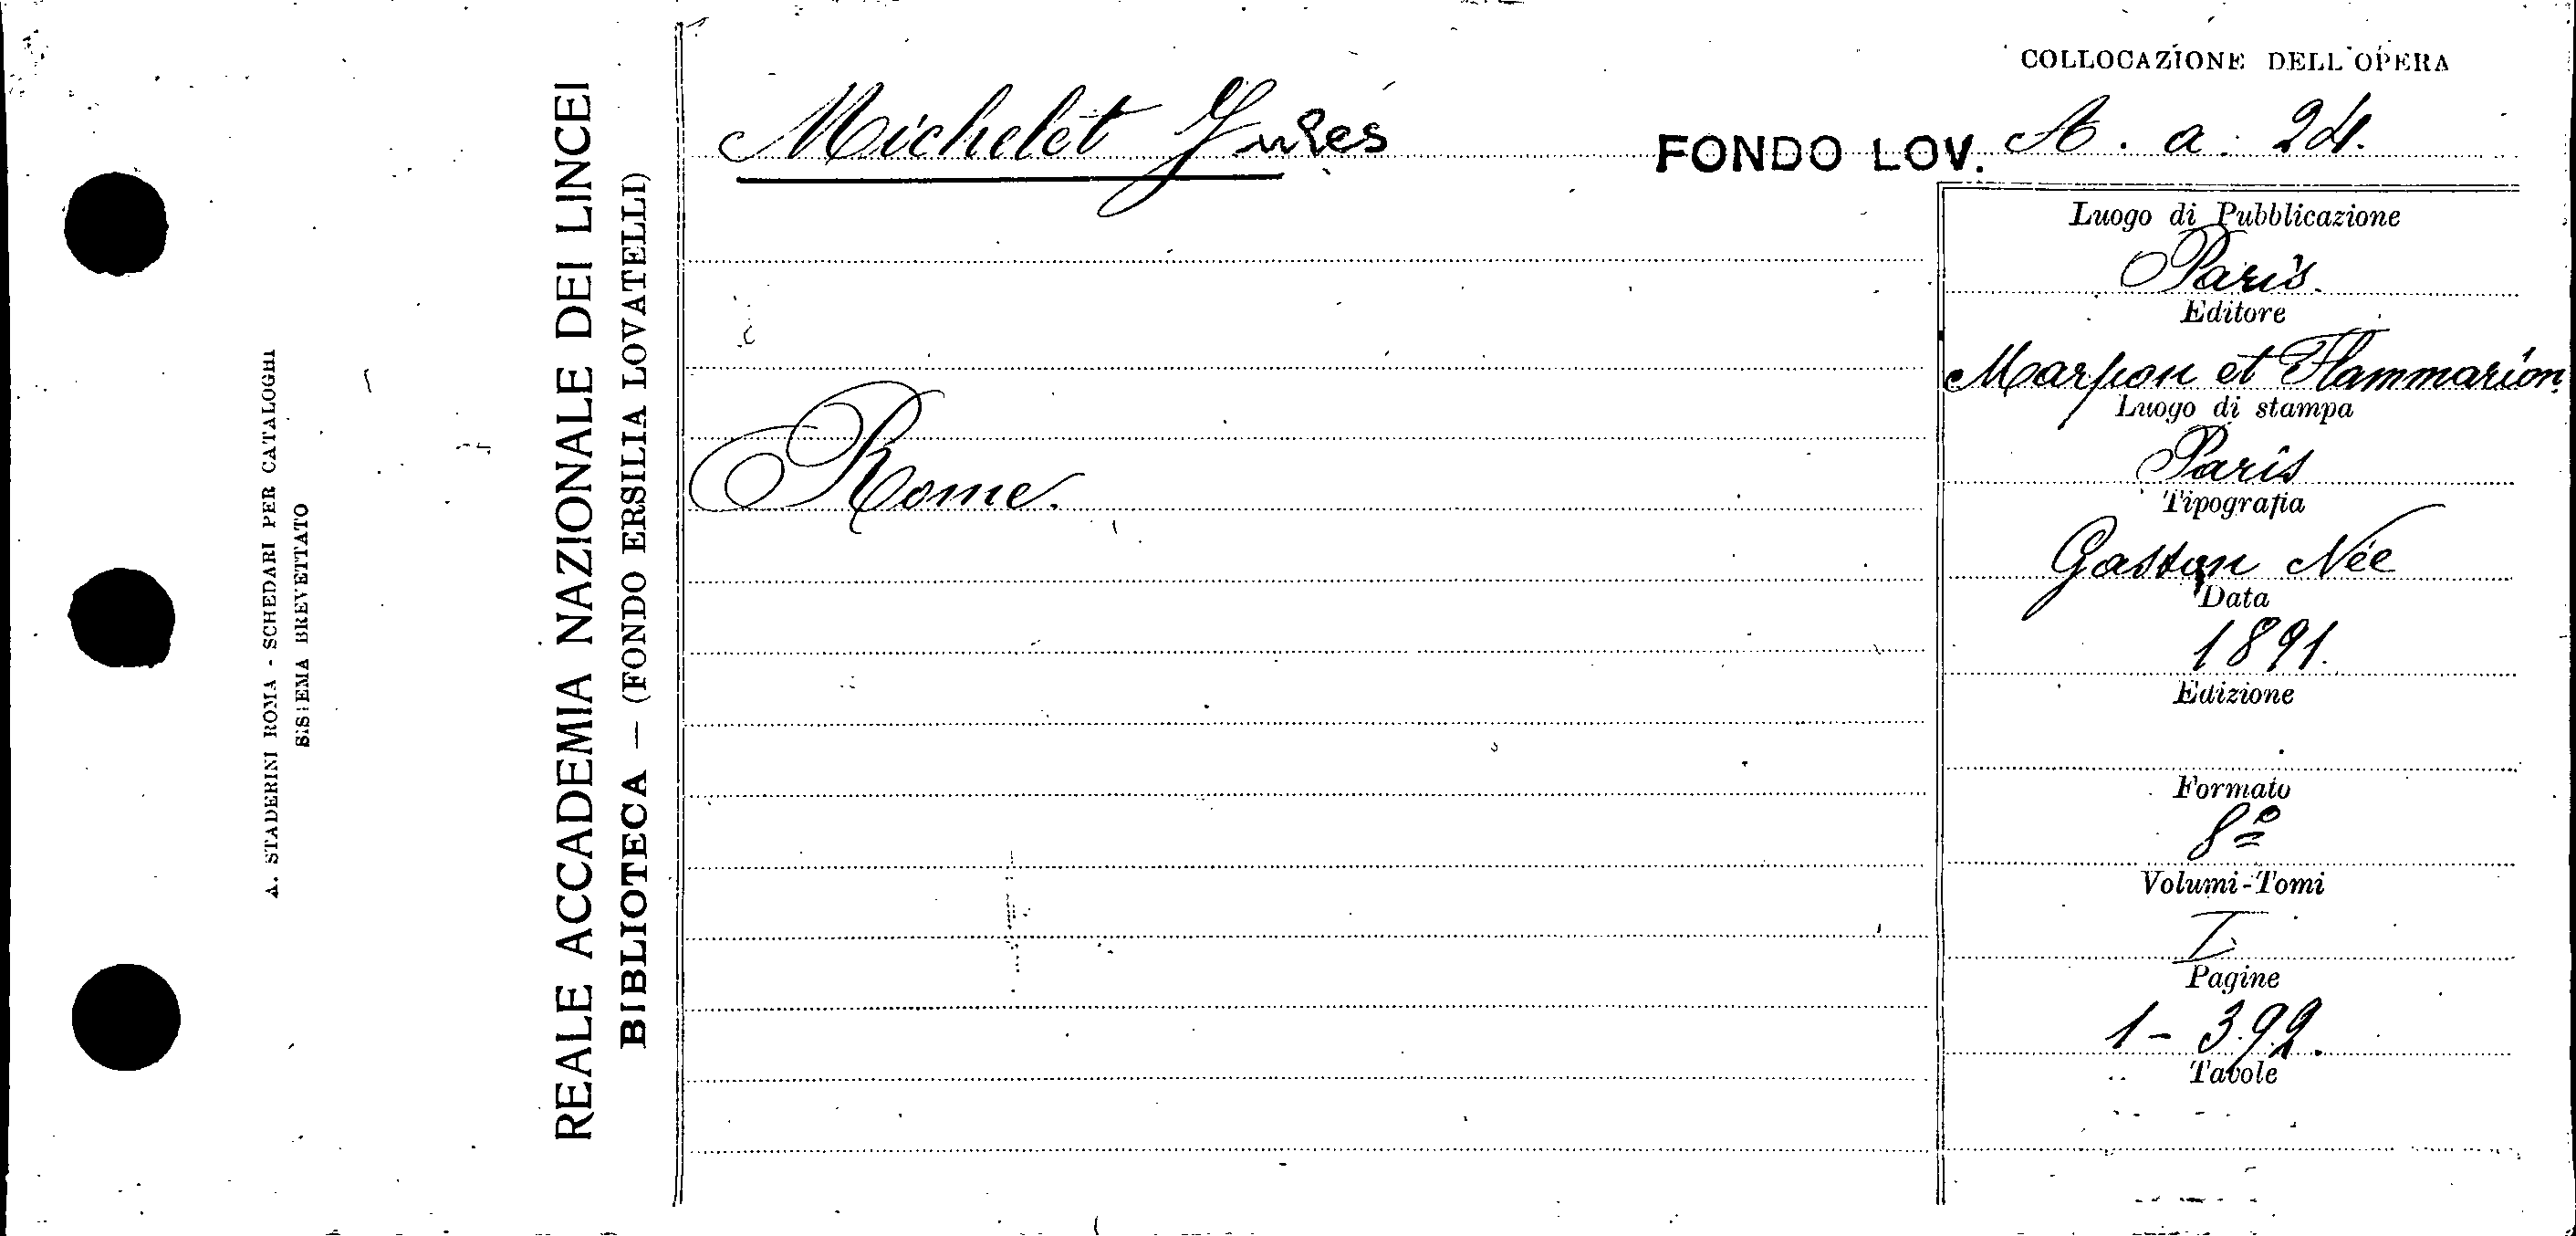 A. STADERINI ROMA - SCHEDARI PER CATALOGHI
SISTEMA BREVETTATO
REALE ACCADEMIA NAZIONALE DEI LINCEI
BIBLIOTECA — (FONDO ERSILIA LOVATELLI)
Michelet Jules
COLLOCAZIONE DELL'OPERA
FONDO LOV. A. a. 24.
Rome.
Luogo di Pubblicazione
Paris.
Editore
Marpon et Flammarion
Luogo di stampa
Paris
Tipografia
Gaston Née
Data
1891.
Edizione
Formato
8º
Volumi-Tomi
I
Pagine
1 - 392.
Tavole